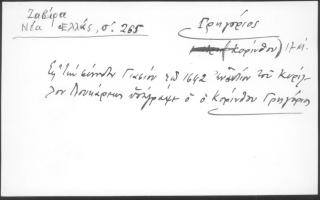 Ζαβίρα
Νέα Ἑλλάς, σ. 265
Γρηγόριος
(Κορίνθου) 17 αἰ.
Εἰς τὴν σύνοδον Γιασίου τοῦ 1642 ἐναντίον τοῦ Κυρίλ-
λου Λουκάρεως ὑπέγραψε ὁ Κορίνθου Γρηγόριος